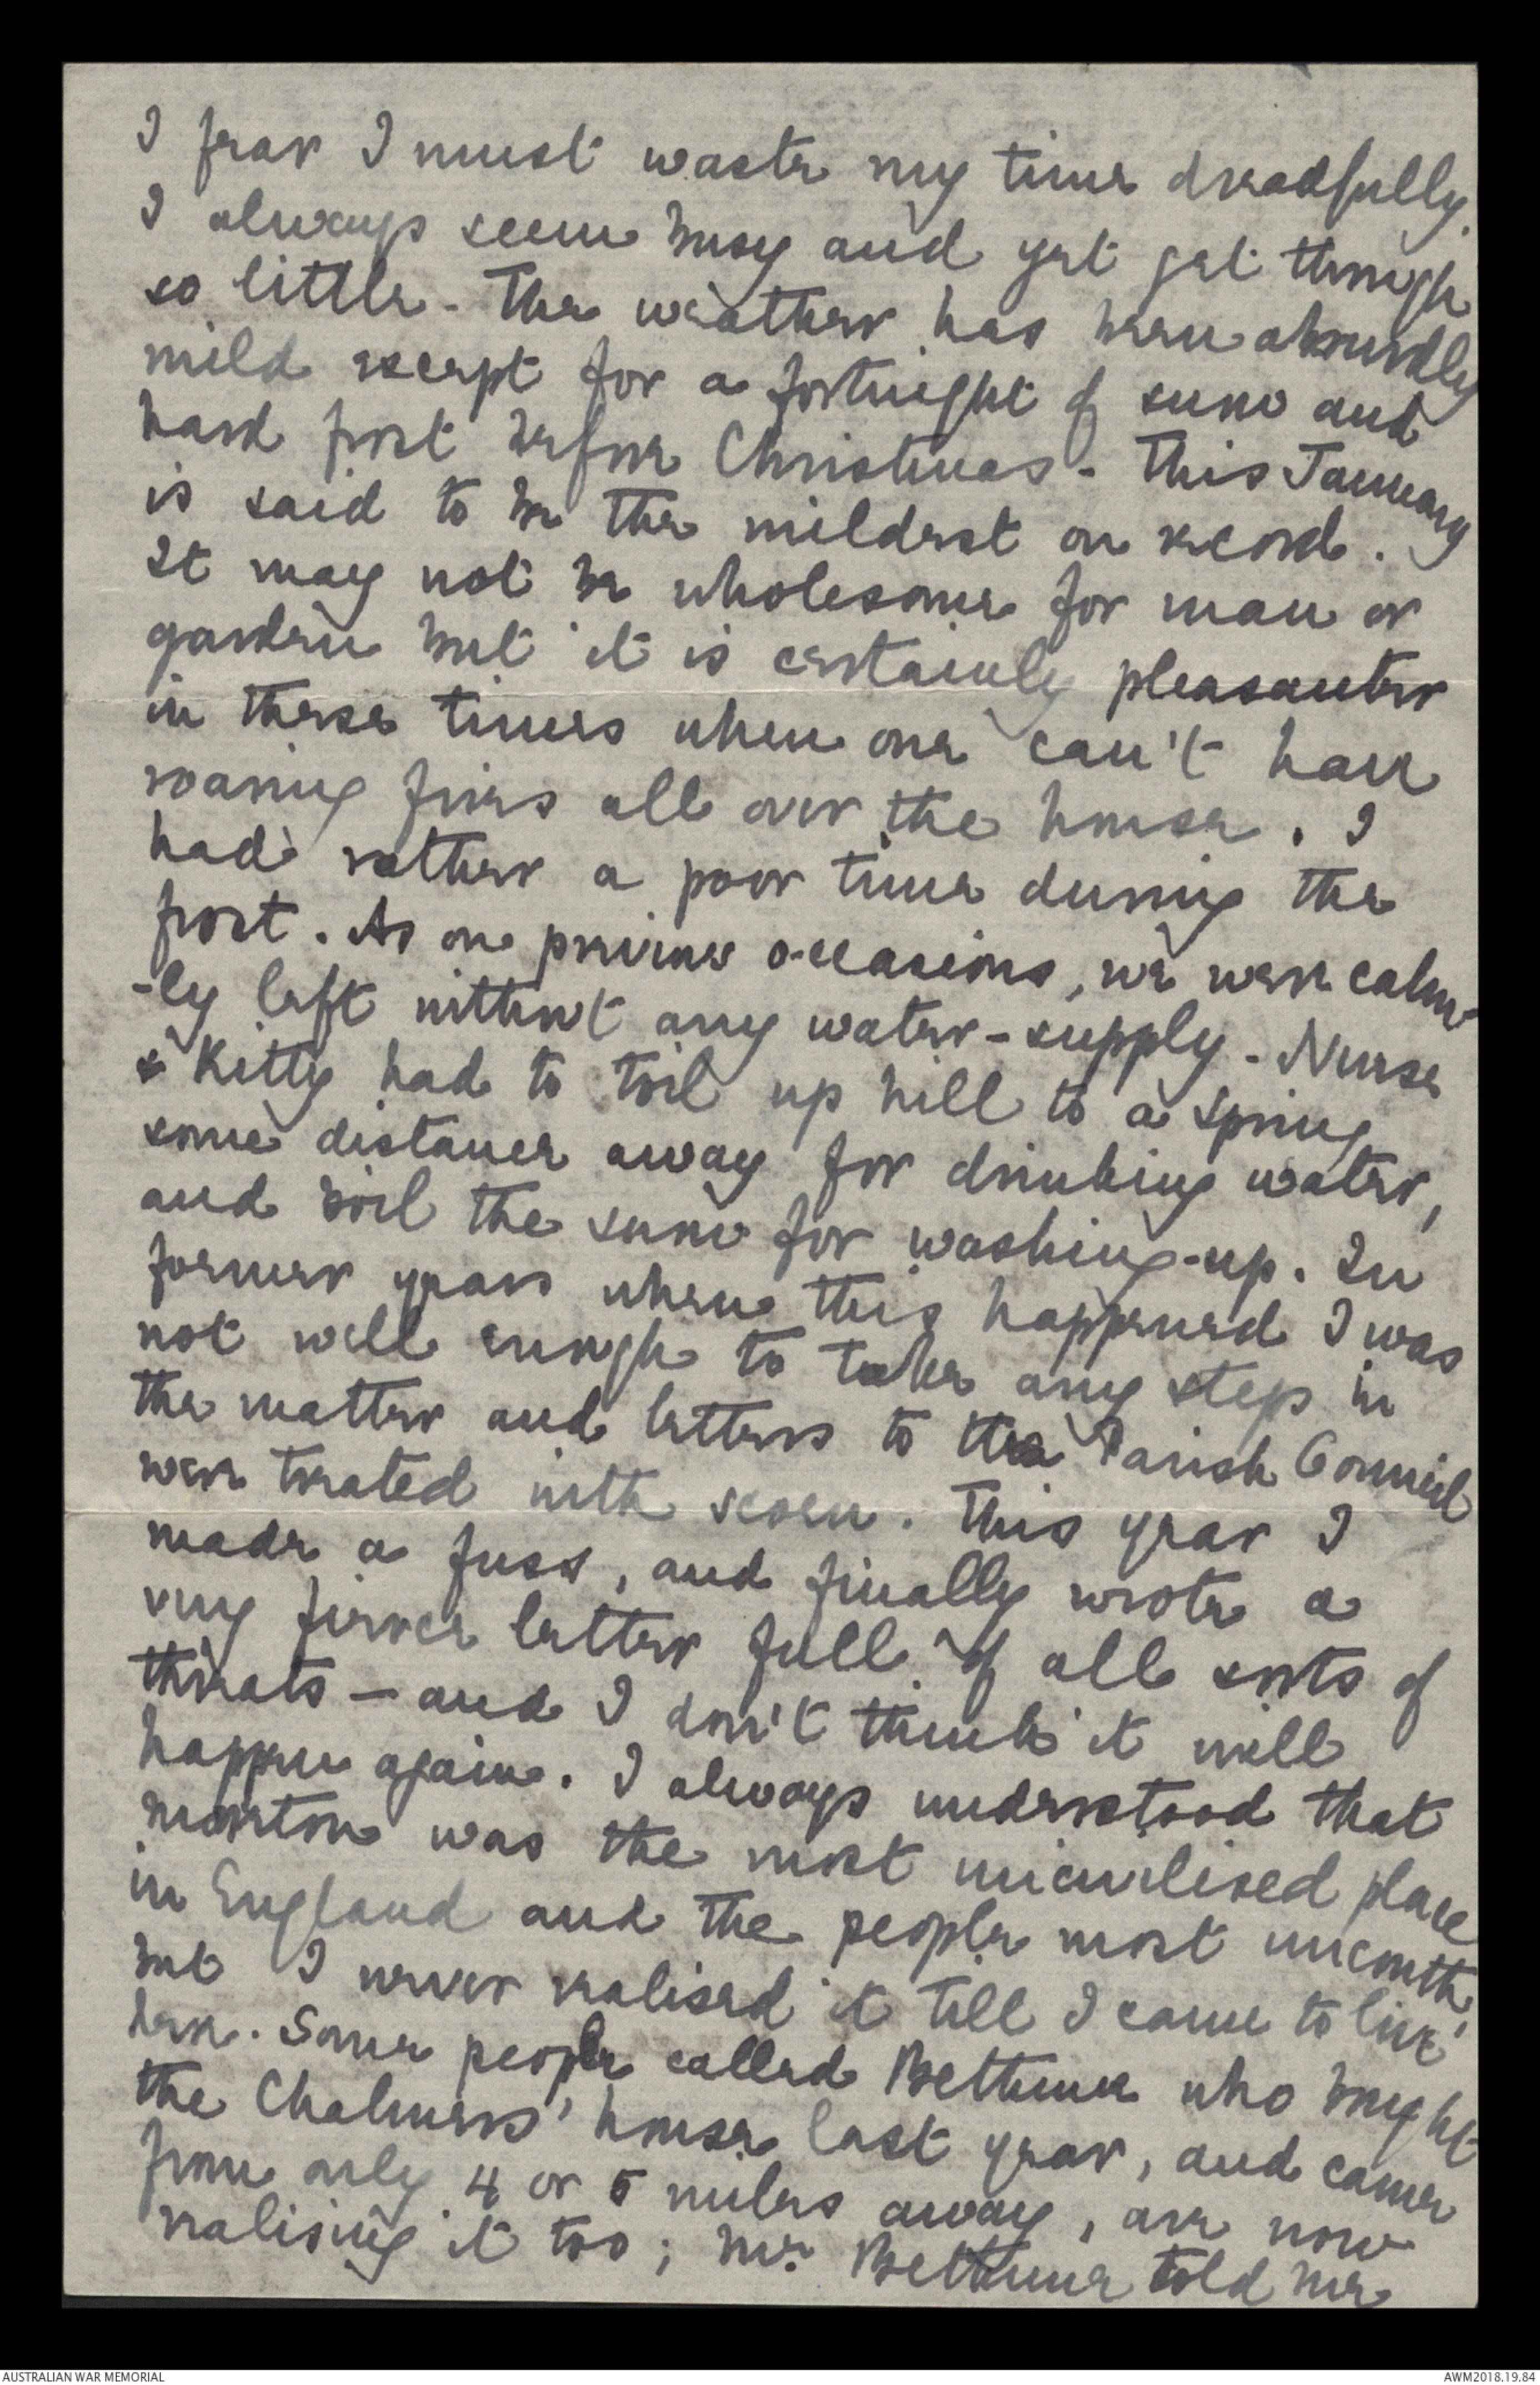 I fear I must waste my time dreadfully.
I always seem busy and yet get through
so little - The weather has been absurdly
mild except for a fortnight of snow and
hard frost before Christmas - This January
is said to be the mildest on record.
It may not be wholesome for man or
garden but it is certainly pleasanter
in these times when one can't have
roaring fires all over the house. I
had rather a poor time during the
frost. As on previous occasions, we were calm-
-ly left without any water-supply - Nurse
& Kitty had to toil up hill to a spring
some distance away for drinking water,
and boil the snow for washing-up. In
former years when this happened I was
not well enough to take any step in
the matter and letters to the Parish Council
were treated with scorn. This year I
made a fuss, and finally wrote a
very fierce letter full of all sorts of
threats - and I don't think it will
happen again. I always understood that
was the most uncivilised place
in England and the people most uncouth,
but I never realised it till I came to live
here. Some people called Bethune who bought
the Chalmers' house last year, and came
from only 4 or 5 miles away, are now
realising it too; Mr. Bethune told me
AUSTRALIAN WAR MEMORIAL
AWM2018.19.84